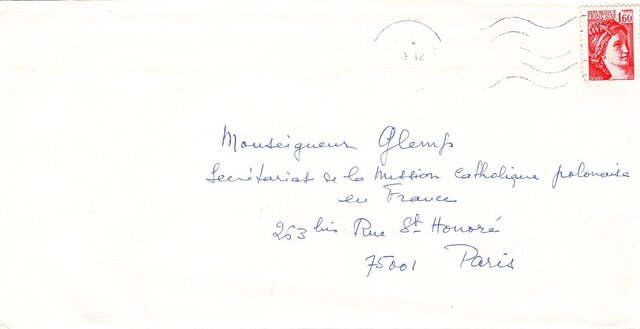 RÉPUBLIQUE
FRANÇAISE
1,60
POSTES
12
Monseigneur Glemp
Secrétariat de la Mission Catholique polonaise
en France
263 bis Rue St Honoré
75001 Paris